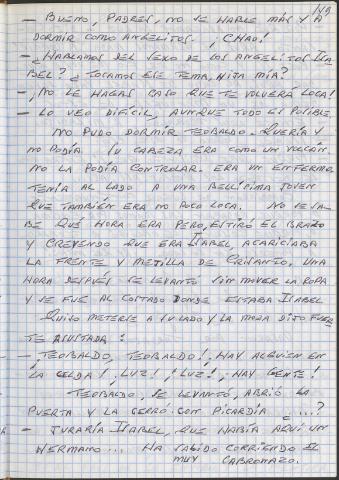 145
- BUENO, PADRES, NO SE HABLE MÁS Y A
DORMIR COMO ANGELITOS. ¡CHAO!
- ¿HABLAMOS DEL SEXO DE LOS ANGELITOS ISA
BEL? ¿TOCAMOS ESE TEMA, HIJA MÍA?
- ¡NO LE HAGAS CASO QUE TE VOLVERÁ LOCA!
- LO VEO DIFÍCIL, AUNQUE TODO ES POSIBLE.
NO PUDO DORMIR TEOBALDO. QUERÍA Y
NO PODÍA. SU CABEZA ERA COMO UN VOLCÁN
NO LA PODÍA CONTROLAR. ERA UN ENFERMO
TENÍA AL LADO A UNA BELLÍSIMA JOVEN
QUE TAMBIÉN ERA NO POCO LOCA. NO SE SA-
BE QUÉ HORA ERA PERO, ESTIRÓ EL BRAZO
Y CREYENDO QUE ERA ISABEL, ACARICIABA
LA FRENTE Y MEJILLA DE CRISANTO. UNA
HORA DESPUÉS SE LEVANTÓ SIN MOVER LA ROPA
Y SE FUE AL COSTADO DONDE ESTABA ISABEL
QUISO METERSE A SU LADO Y LA MORA DIJO FUER
TE ASUSTADA:
- TEOBALDO, TEOBALDO! HAY ALGUIEN EN
LA CELDA! ¡LUZ! ¡LUZ!, ¡HAY GENTE!
TEOBALDO, SE LEVANTÓ, ABRIÓ LA
PUERTA Y LA CERRÓ CON PICARDÍA ¿...?
- JURARÍA ISABEL, QUE HABÍA AQUÍ UN
HERMANO... HA SALIDO CORRIENDO EL
MUY CABRONAZO.